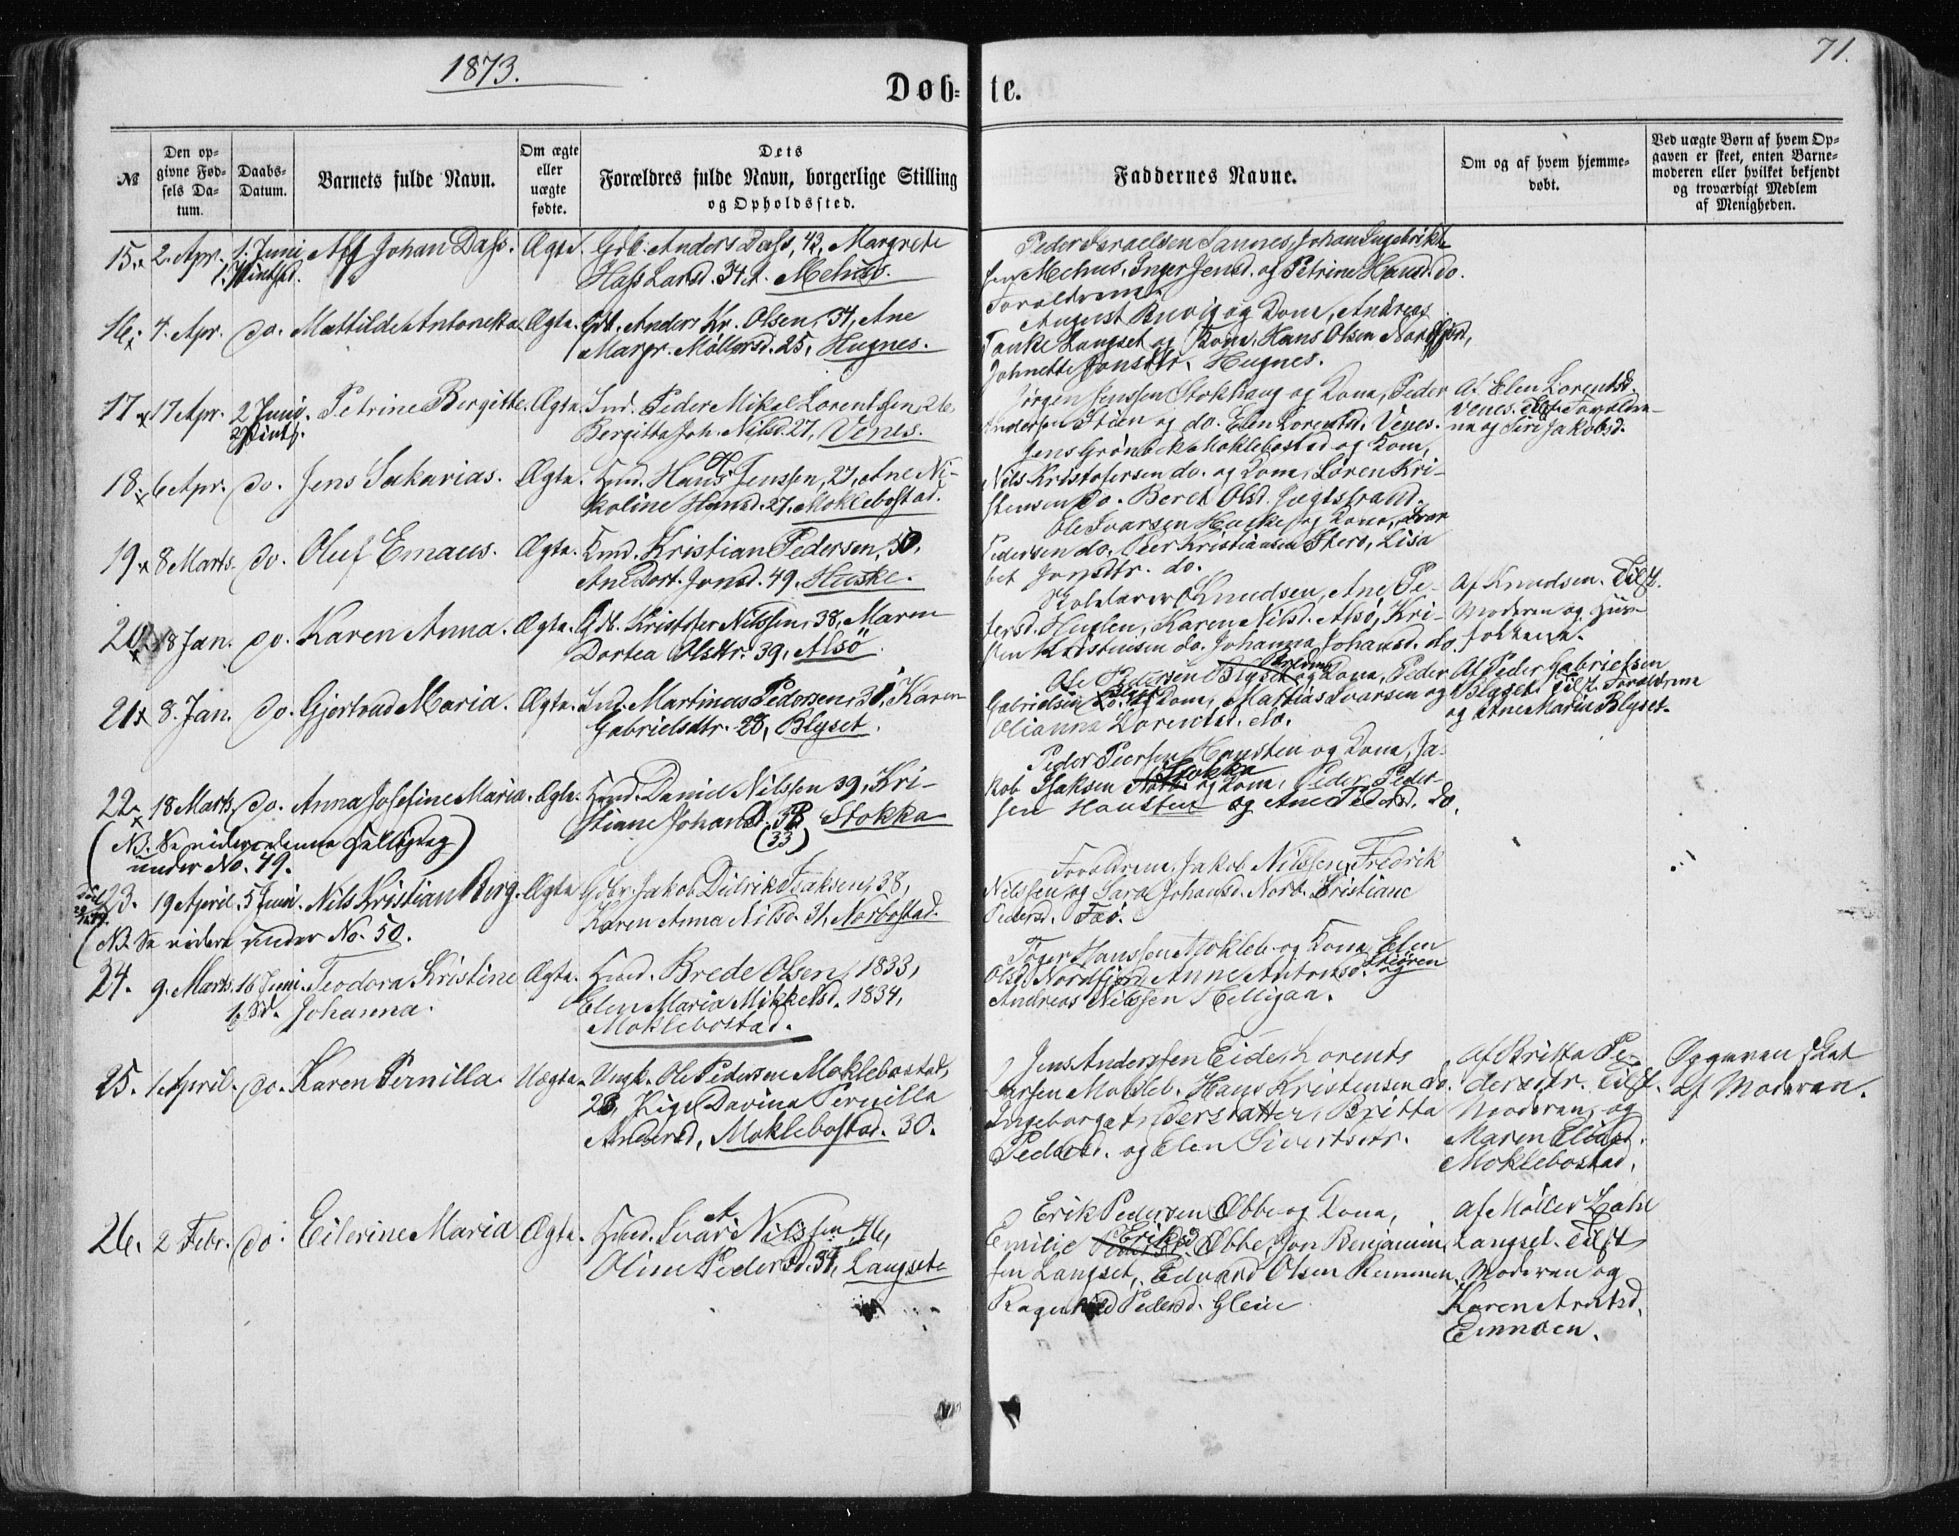 1873.
71.
Døb=te.
№
Den op=
givne Fød=
sels Da=
tum.
Daabs=
Datum.
Barnets fulde Navn.
Om ægte
eller
uægte
fødte.
Dets
Forældres fulde Navn, borgerlige Stilling
og Opholdssted.
Faddernes Navne.
Om og af hvem hjemme=
døbt.
Ved uægte Børn af hvem Op=
gaven er skeet, enten Barne=
moderen eller hvilket bekjendt
og troværdigt Medlem
af Menigheden.
15. 2. Apr. 1. Juni Johan Dass. Ægte. Gdb. Anders Dass, 43, Margrete
Larsd. 34. Mehus.
Peder Israelsen Sannes, Johan Ingebrikt-
sen Mehus, Inger Jensd. og Petrine Hansd. do.
Forældrene.
16. 4. Apr. do. Mattilde Antonetta Ægte. Gdb. Anders Kr. Olsen, 34, Ane
Margr. Møllersd. 25, Hugnes.
August Buvig og Kone, Andreas
Tanke Langset og Kone, Hans Olsen Nordfjord,
Johnette Jonsdtr. Hugnes.
17 17 Apr. 2 Juni. Petrine Bergitte. Ægte. Ind. Peder Mikal Lorentsen, 26,
Bergitta Joh. Nilsd. 27, Venes.
Jørgen Jenssen Stokhaug og Kone, Peder
Andersen Støen og do. Elen Lorentsd. Venes.
Af Elen Lorentsd.
Venes. Tilst. Forældre-
ne og Siri Jakobsd.
18. 6 Apr. do. Jens Sakarias. Ægte. Hmd. Hans Jenssen, 27, Ane Ni-
koline Hansd. 27. Moklebostad.
Jens Grønbek Moklebostad og Kone,
Nils Kristofersen do. og Kone, Søren Kri-
stensen do. Beret Olsd. Jægtstrand.
19. 8 Marts. do. Oluf Emaus. Ægte. Hmd. Kristian Pedersen, 50,
Ane Dort. Jonsd. 49. Huske.
Ole Ivarsen Huske og Kone, Ivar
Pedersen do. Peer Kristiansen Sterø, Lisa
bet Jonsdtr. do.
20. 18 Jan. do. Karen Anna. Ægte. Gdb. Kristffer Nilssen, 38, Maren
Dortea Olsdtr. 39, Alsø.
Skolelærer Knudsen, Ane Pe-
tersd. Huglen, Karen Nilsd. Alsø, Kri-
sten Kristensen do. Johanna Johansd. do.
Af Knudsen. Tilst.
Moderen og
21. 8. Jan. do. Gjertrud Maria. Ægte. Ind. Martinus Pedersen, 31, Karen
Gabrielsdtr. 28, Blyset.
Ole Pedersen Blyset og Kone, Peder
Gabrielsen Blyset og Kone, Mattias Ivarsen og
Olianna Lorentsd. do.
Af Peder Gabrielsen
Blyset. Tilst. Forældrene
og Ane Marie Blyset.
22. 18 Marts. do. Anna Josefine Maria. Ægte. Hmd. Daniel Nilssen 39, Kri-
stiane Johansd. 38 Stokka
(33)
Peder Peersen Hausten og Kone, Ja-
kob Isaksen Stokka og Kone, Peder Peder
sen Hausten og Ane Pedersd. do.
(NB. Se videre denne
under No. 49.
23. 19 April. 5 Juni. Nils Kristian Berg. Ægte Gdbr. Jakob Didrik Isaksen, 38,
Karen Anna Nilsd. 31, Norbostad.
Forældrene, Jakob Nilssen, Fredrik
Nilssen og Sara Johansd. Norb. Kristiane
Pedersd. Taø.
(NB. Se videre under No. 50.
24. 9. Marts. 16 Juni. Teodora Kristine Ægte. Hmd. Brede Olsen, 1833,
Johanna.
Elen Maria Mikkelsd. 1834,
Moklebostad.
Tøger Hanssen Mokleb. og Kone, Elen
Olsd. Nordfjord, Anne Antonsd. Støren
Andreas Nilssen Helligaa.
25. 1 April. do. Karen Pernilla. Uægte. Ungk. Ole Pedersen Moklebostad,
28, Pige Davina Pernilla
Andersd, Moklebostad. 30.
Jens Anderssen Eide, Lorents
Larsen Mokleb. Hans Kristensen do.
Ingeborg Britta
Pedersd. og Elen Sivertsdtr.
Af Britta Pe-
dersdtr. Tilst.
Moderen, og
Maren Eliasd.
Moklebostad.
Opgaven skeet
af Moderen.
26. 2 Febr. do. Eilerine Maria Ægte. Hmd. Ivar A. Nilssen 46,
Oline Pedersd. 37, Langsete
Erik Pedersen Øbbe og Kone,
Emilie Eriksd. Øbbe, Jon Benjamin
sen Langset, Edvard Olsen Remmen,
Ragenhild Pedersd. Glein
Af Møller Zahl
Langset. Tilst
Moderen og
Karen Arntsd.
Einnøen.